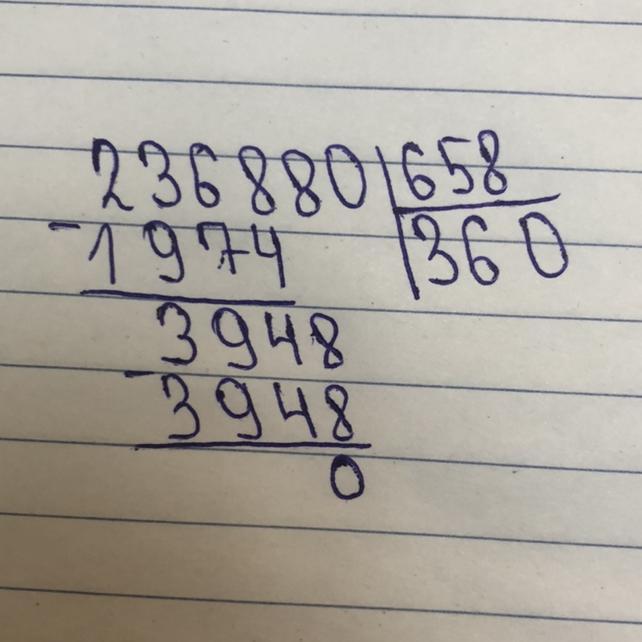 236880 658
-1974 360
3948
-3948
0